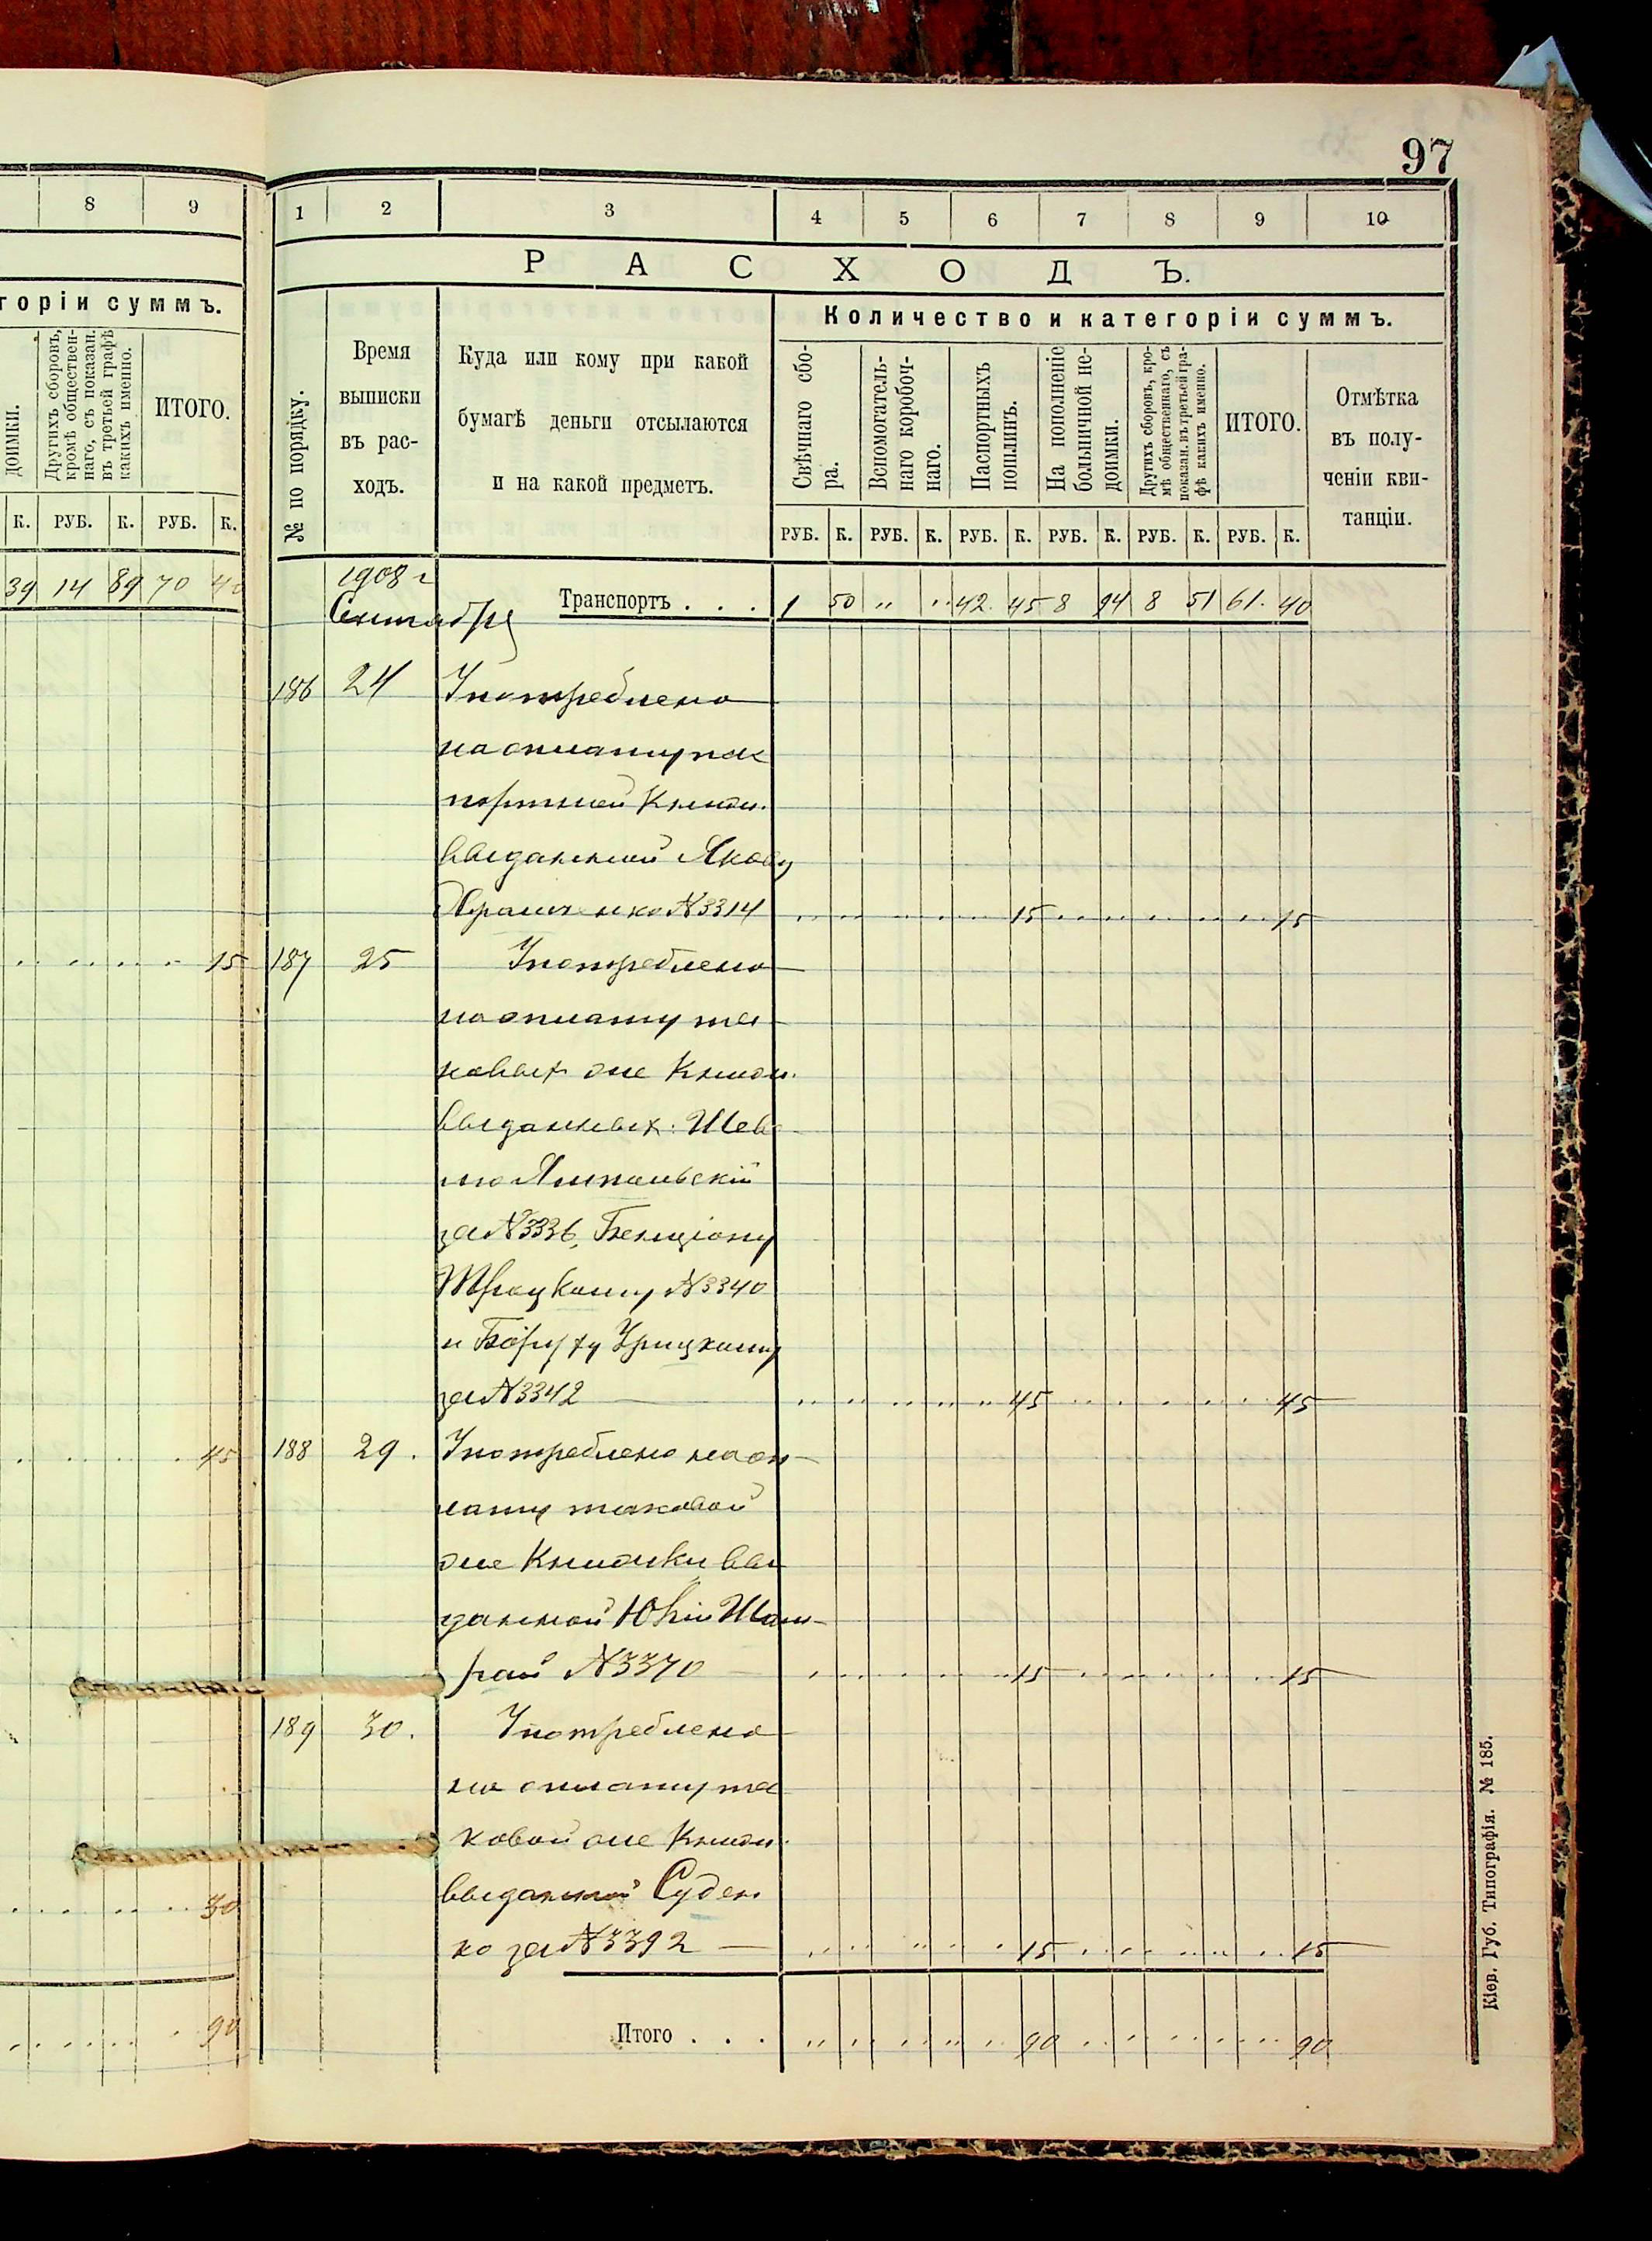 97
8 9
горіи суммъ.
доимки.
Другихъ сборовъ, кромѣ обществен-наго, съ показан. въ третьей графѣ какихъ именно.
ИТОГО.
К. РУБ. К. РУБ. К.
39 14 89 70 40
15
45
30
90
1 2 3 4 5 6 7 8 9 10
РАСХОДЪ.
Количество и категоріи суммъ.
№ по порядку.
Время
выписки
въ рас-
ходъ.
Куда или кому при какой
бумагѣ деньги отсылаются
и на какой предметъ.
Свѣчнаго сбо-
ра.
Вспомогатель-
наго коробоч-
наго.
Паспортныхъ
пошлинъ.
На пополненіе
больничной не-
доимки.
Другихъ сборовъ, кро-
мѣ общественнаго, съ
показан. въ третьей гра-
фѣ какихъ именно.
ИТОГО.
Отмѣтка
въ полу-
ченіи кви-
танціи.
РУБ. К. РУБ. К. РУБ. К. РУБ. К. РУБ. К. РУБ. К.
1908 г
Сентября
Транспортъ . . . 1 50 " " 42 45 8 94 8 51 61 40
186 24 Употреблено
на оплату пас
портной Книж.
выданной Якову
Абрамченко № 3314 15 15
187 25 Употреблено
на оплату та
ковых же Книж.
выданных:
за № 3336, Бенціону
Троцкому № 3340
и Боруху Урицкому
за № 3342 45 45
188 29. Употреблено на оп-
лату таковой
же Книжки вы
данной
№ 3370 15 15
189 30. Употреблено
на оплату та
ковой же Книж.
выданной Суден
ко за № 3392 15 15
Итого . . . 90 90
Кіев. Губ. Типографія. № 185.